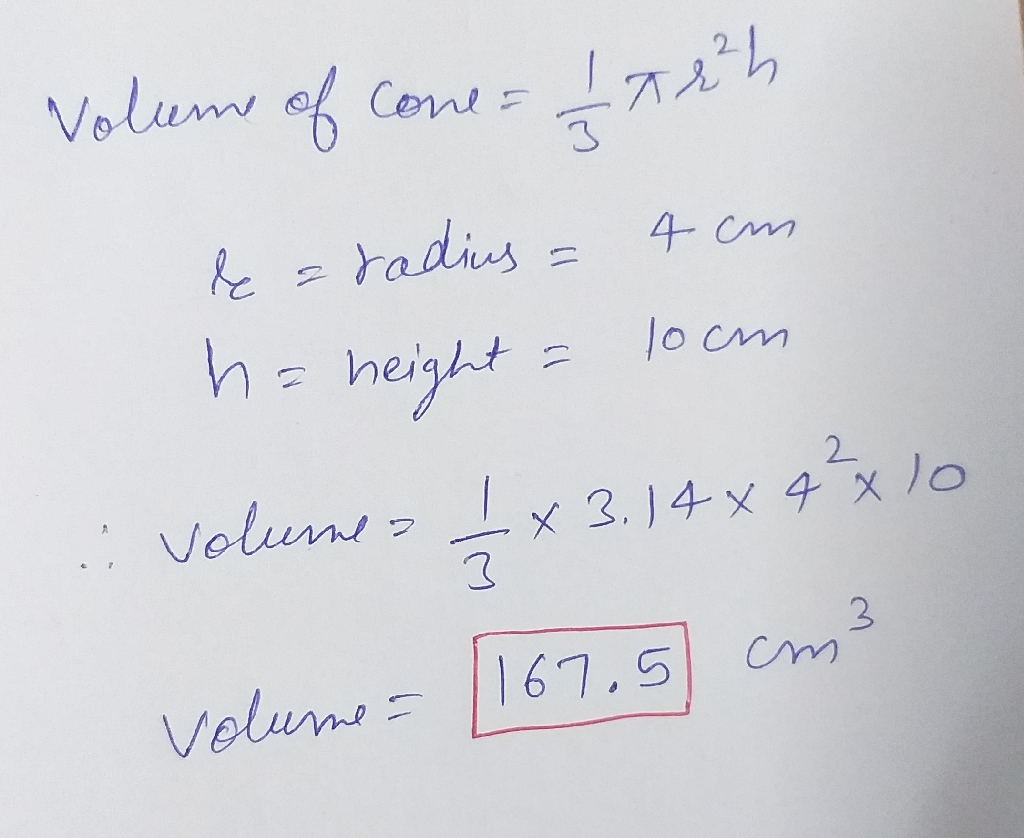 Volume of Cone = 1/3 πr²h
r = radius = 4 cm
h = height = 10 cm
∴ Volume = 1/3 × 3.14 × 4² × 10
Volume = 167.5 cm³